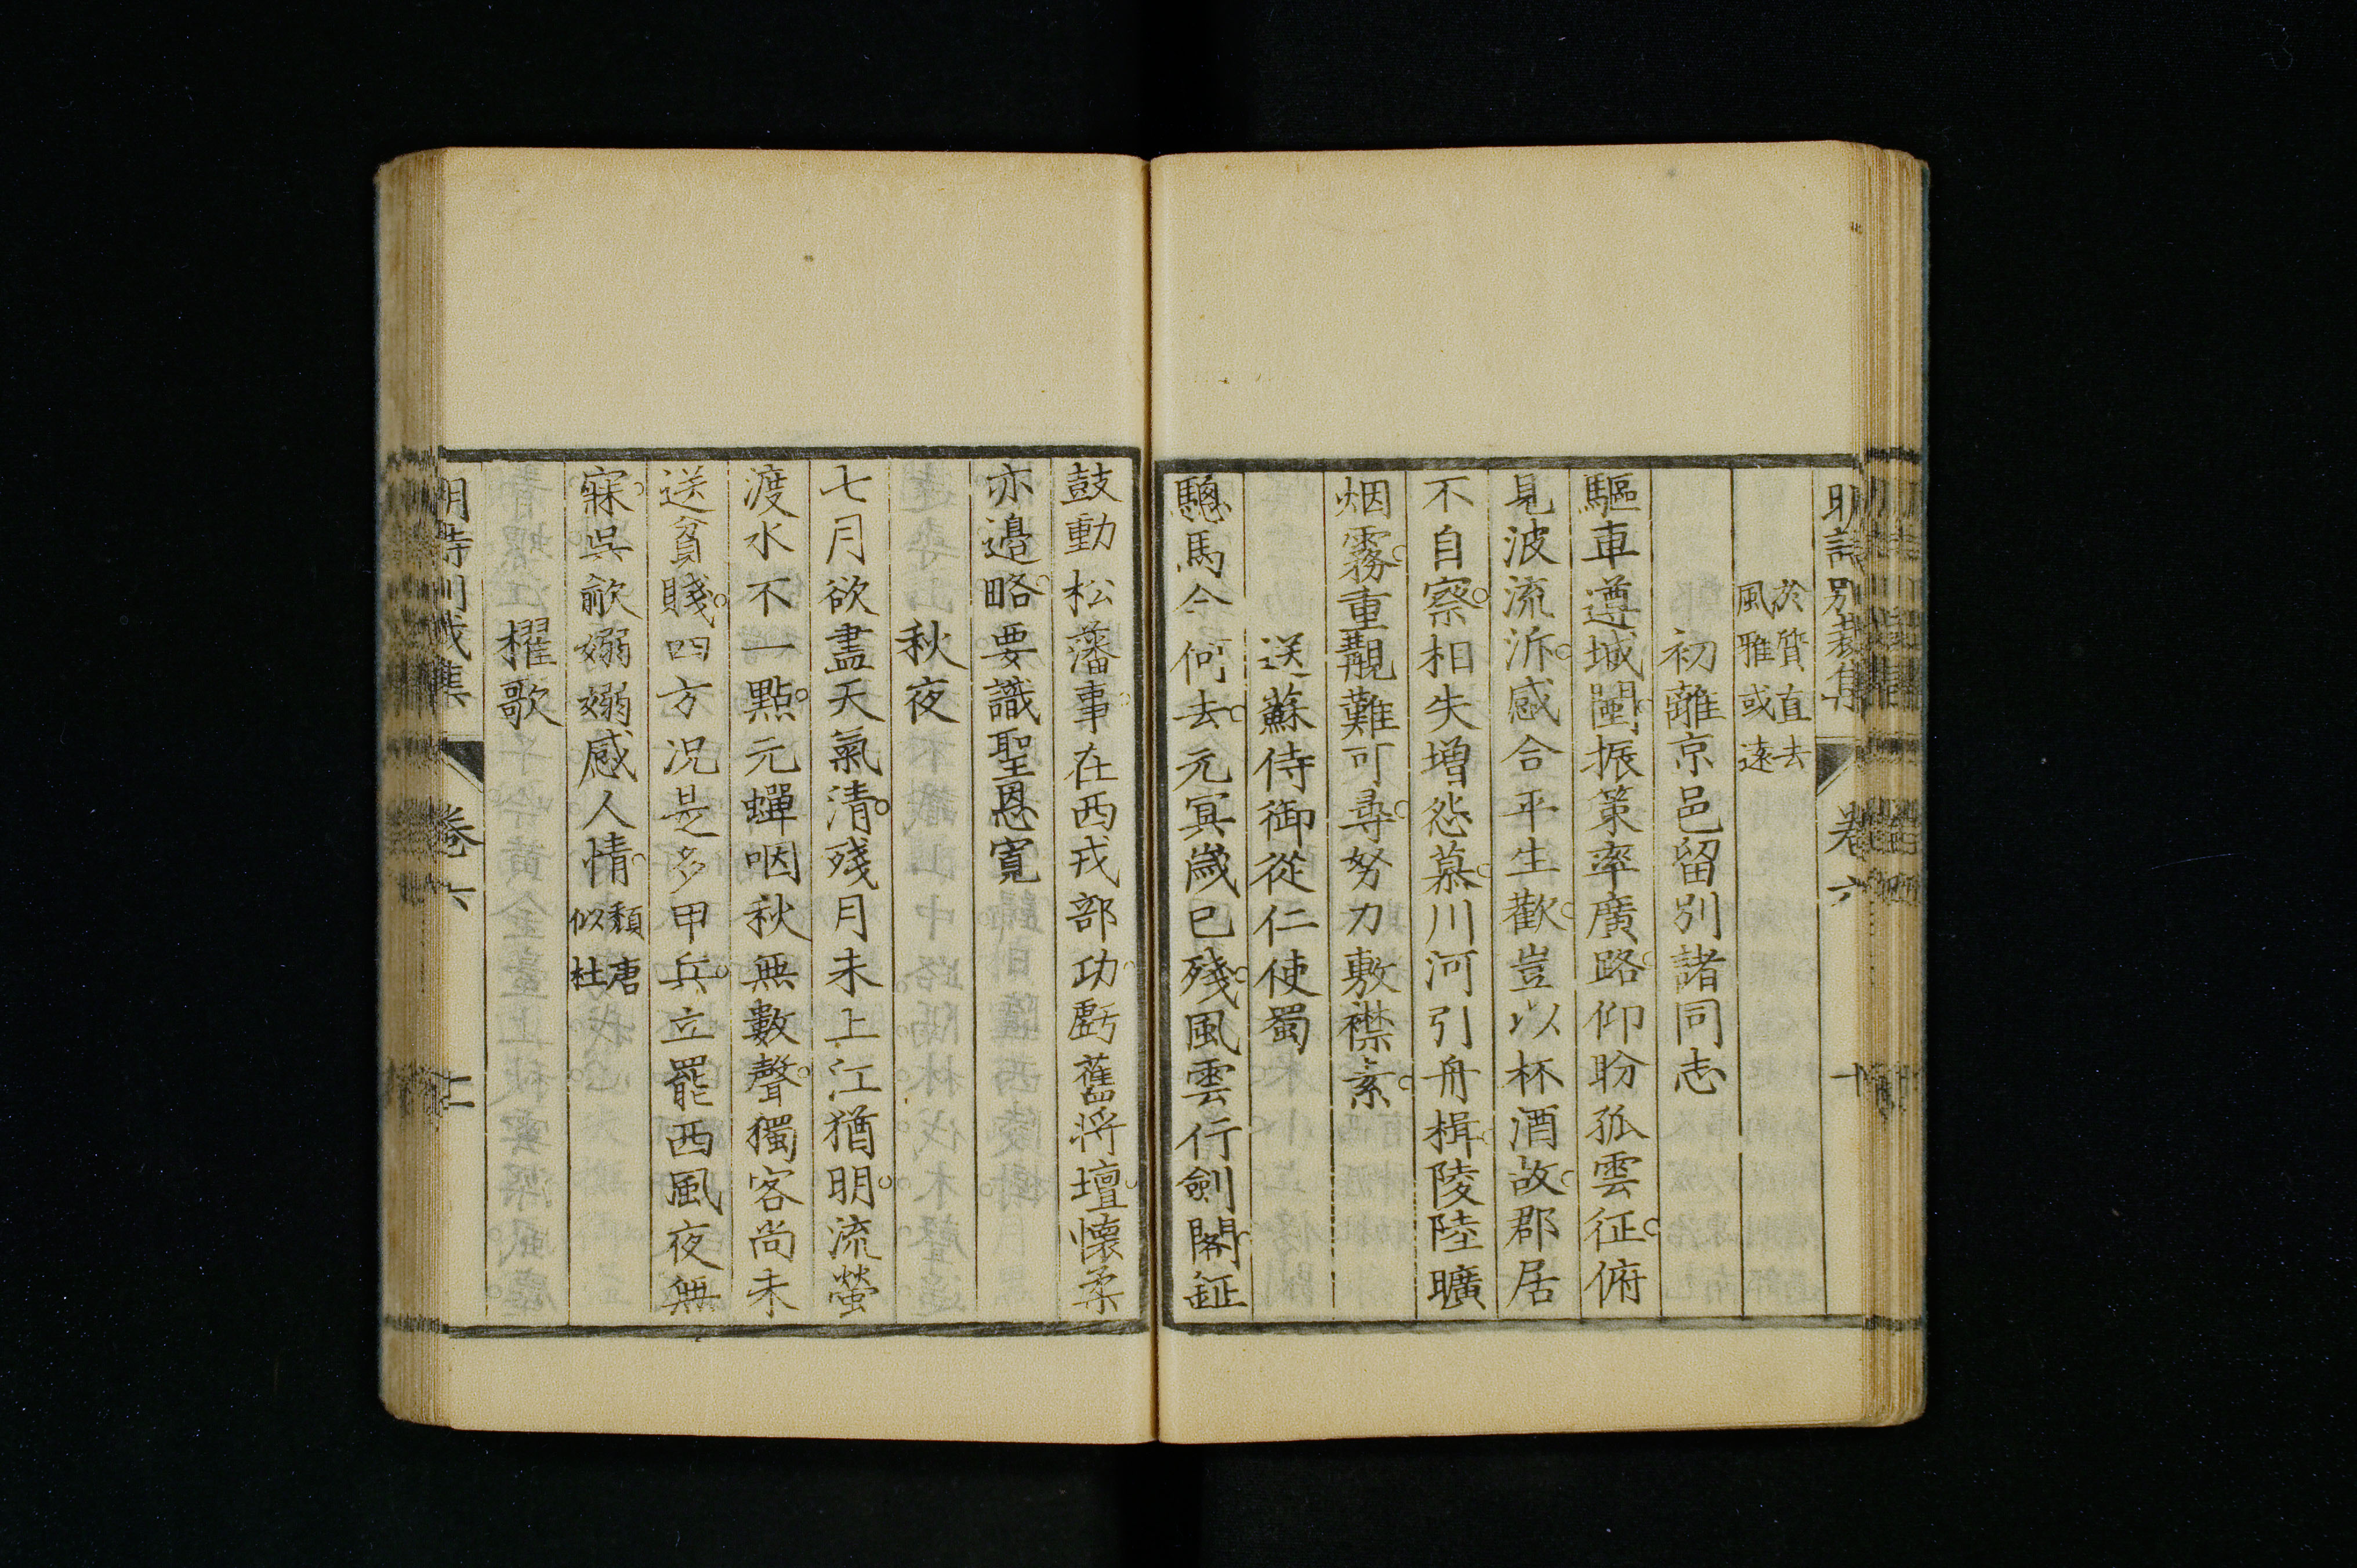 明詩別裁集 卷六 十
於質直去
風雅或遠
初離京邑留別諸同志
驅車遵城闉振策率廣路仰盼孤雲征俯
見波流泝感合平生歡豈以杯酒故郡居
不自察相失增怨慕川河引舟楫陵陸曠
烟霧重覯難可尋努力敷襟素
送蘇侍御從仁使蜀
驄馬今何去元冥歲已殘風雲行劍閣鉦
鼓動松藩事在西戎部功虧舊將壇懷柔
亦邉略要識聖恩寬
秋夜
七月欲盡天氣清殘月未上江猶明流螢
渡水不一點元蟬咽秋無數聲獨客尚未
送貧賤四方况是多甲兵立罷西風夜無
寐吳歈嫋嫋感人情
頹唐
似杜
櫂歌
明詩別裁集 卷六 十一